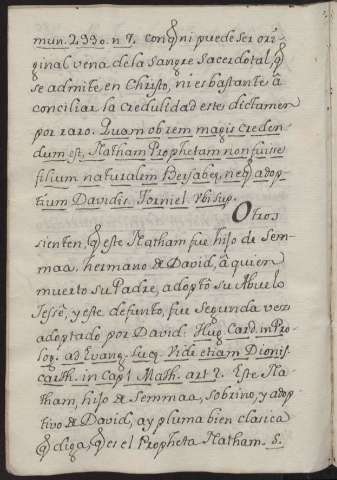 mun. 2330. n 7. con q̃ ni puede ser ori-
ginal vena de la sangre sacerdotal, q̃
se admite en Christo, ni es bastante â
conciliar la credulidad este dictamen
por raro. Quam ob rem magis creden-
dum est, Natham Prophetam non fuisse
filium naturalem Bersabeę, neq̃ adop-
tium Davidis. Torniel. vbi sup.
Otros
sienten, q̃ este Natham fue hijo de Sem-
maa, hermano de David, â quien
muerto su Padre, adoptò su Abuelo
Jessè, y este defunto, fue segunda vez
adoptado por David. Hug. Card. in Pro-
log. ad Evang. Lucę. Vide etiam Dionis.
Carth. in Cap. 1 Math. art. 2. Este Na-
tham, hijo de Semmaa, sobrino, y adop-
tivo de David, ay pluma bien clasica
q̃ diga, q̃ es el Propheta Natham. S.